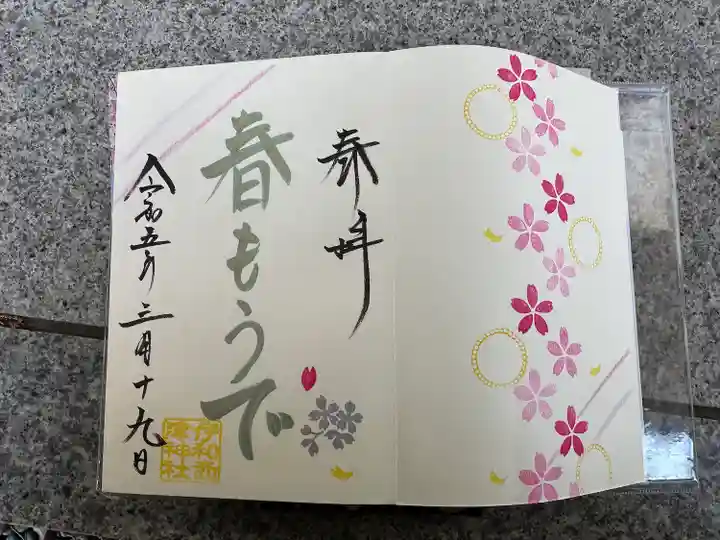 奉拝
春もうで
令和五年三月十九日
伊和志
津神社